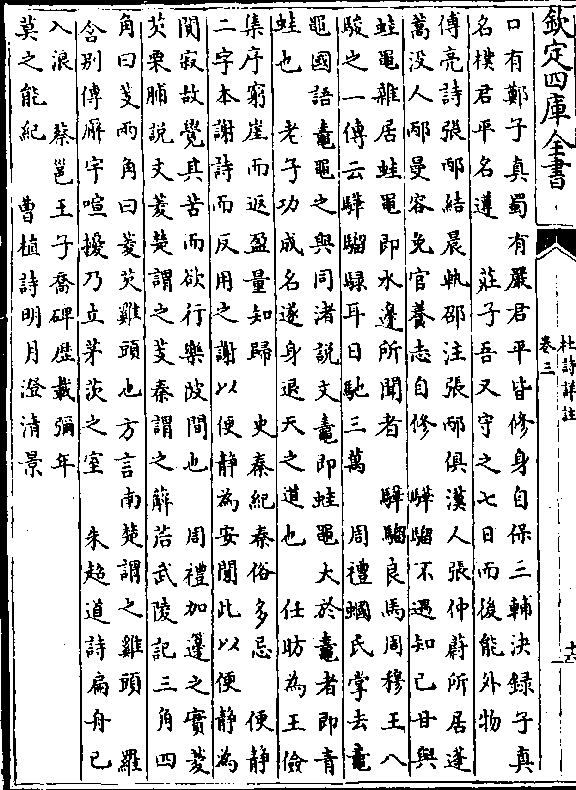 欽定四庫全書
杜詩詳註
卷三
口有鄭子真蜀有嚴君平皆修身自保三輔決録子真
名樸君平名遵 莊子吾又守之七日而後能外物
傅亮詩張邴結晨軌邵注張邴俱漢人張仲蔚所居蓬
蒿没人邴曼容免官養志自修 驊騮不遇知己甘與
蛙黽雜居蛙黽即水邊所聞者 驊騮良馬周穆王八
駿之一傳云驊騮騄耳日馳三萬 周禮蟈氏掌去鼃
黽國語鼃黽之與同渚說文鼃即蛙黽大於鼃者即青
蛙也 老子功成名遂身退天之道也 任昉為王儉
集序窮崖而返盈量知歸 史秦紀秦俗多忌 便静
二字本謝詩而反用之謝以便静為安閒此以便静為
閴寂故覺其苦而欲行樂陂間也 周禮加籩之實菱
芡栗脯説文菱楚謂之芰秦謂之薢茩武陵記三角四
角曰芰兩角曰菱芡雞頭也方言南楚謂之雞頭 羅
含别傳廨宇喧擾乃立茅茨之室 朱超道詩扁舟已
入浪 蔡邕王子喬碑歴載彌年
莫之能紀 曹植詩明月澄清景